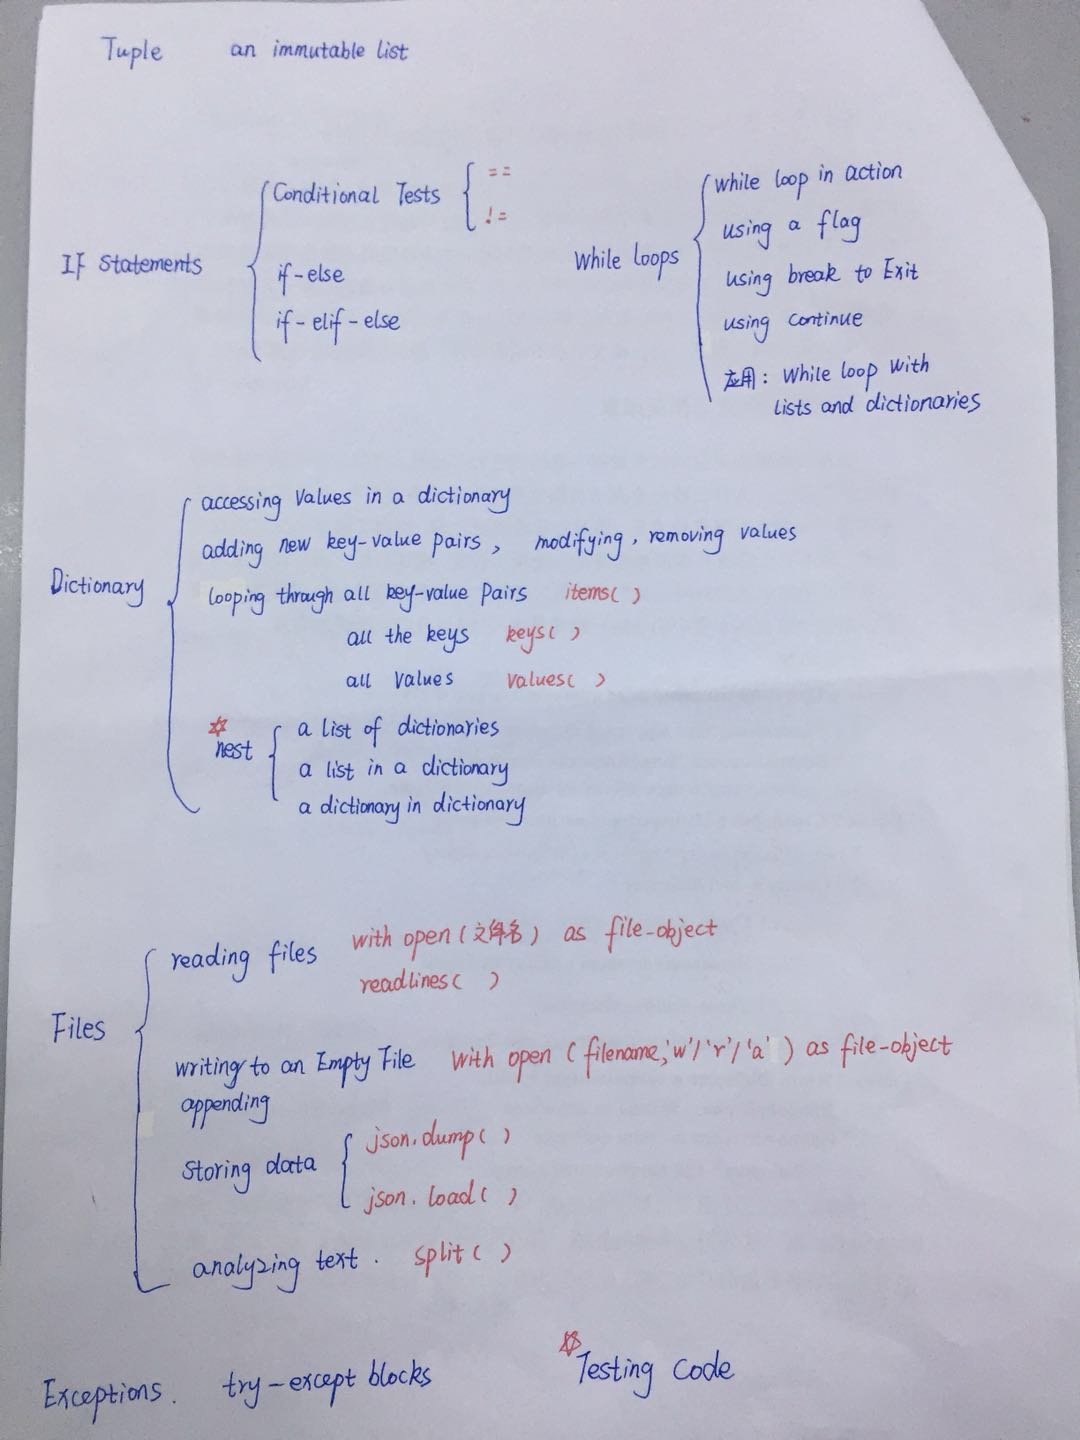 Tuple an immutable list
If statements
Conditional Tests
==
!=
if-else
if-elif-else
While loops
while loop in action
using a flag
using break to Exit
using continue
应用: While loop with
lists and dictionaries
Dictionary
accessing values in a dictionary
adding new key-value pairs, modifying, removing values
looping through all key-value pairs items( )
all the keys keys( )
all values values( )
nest
a list of dictionaries
a list in a dictionary
a dictionary in dictionary
Files
reading files with open(文件名) as file-object
readlines( )
writing to an Empty File with open (filename,'w'/'r'/'a') as file-object
appending
Storing data
json.dump( )
json.load( )
analyzing text. split( )
Exceptions. try-except blocks
Testing code